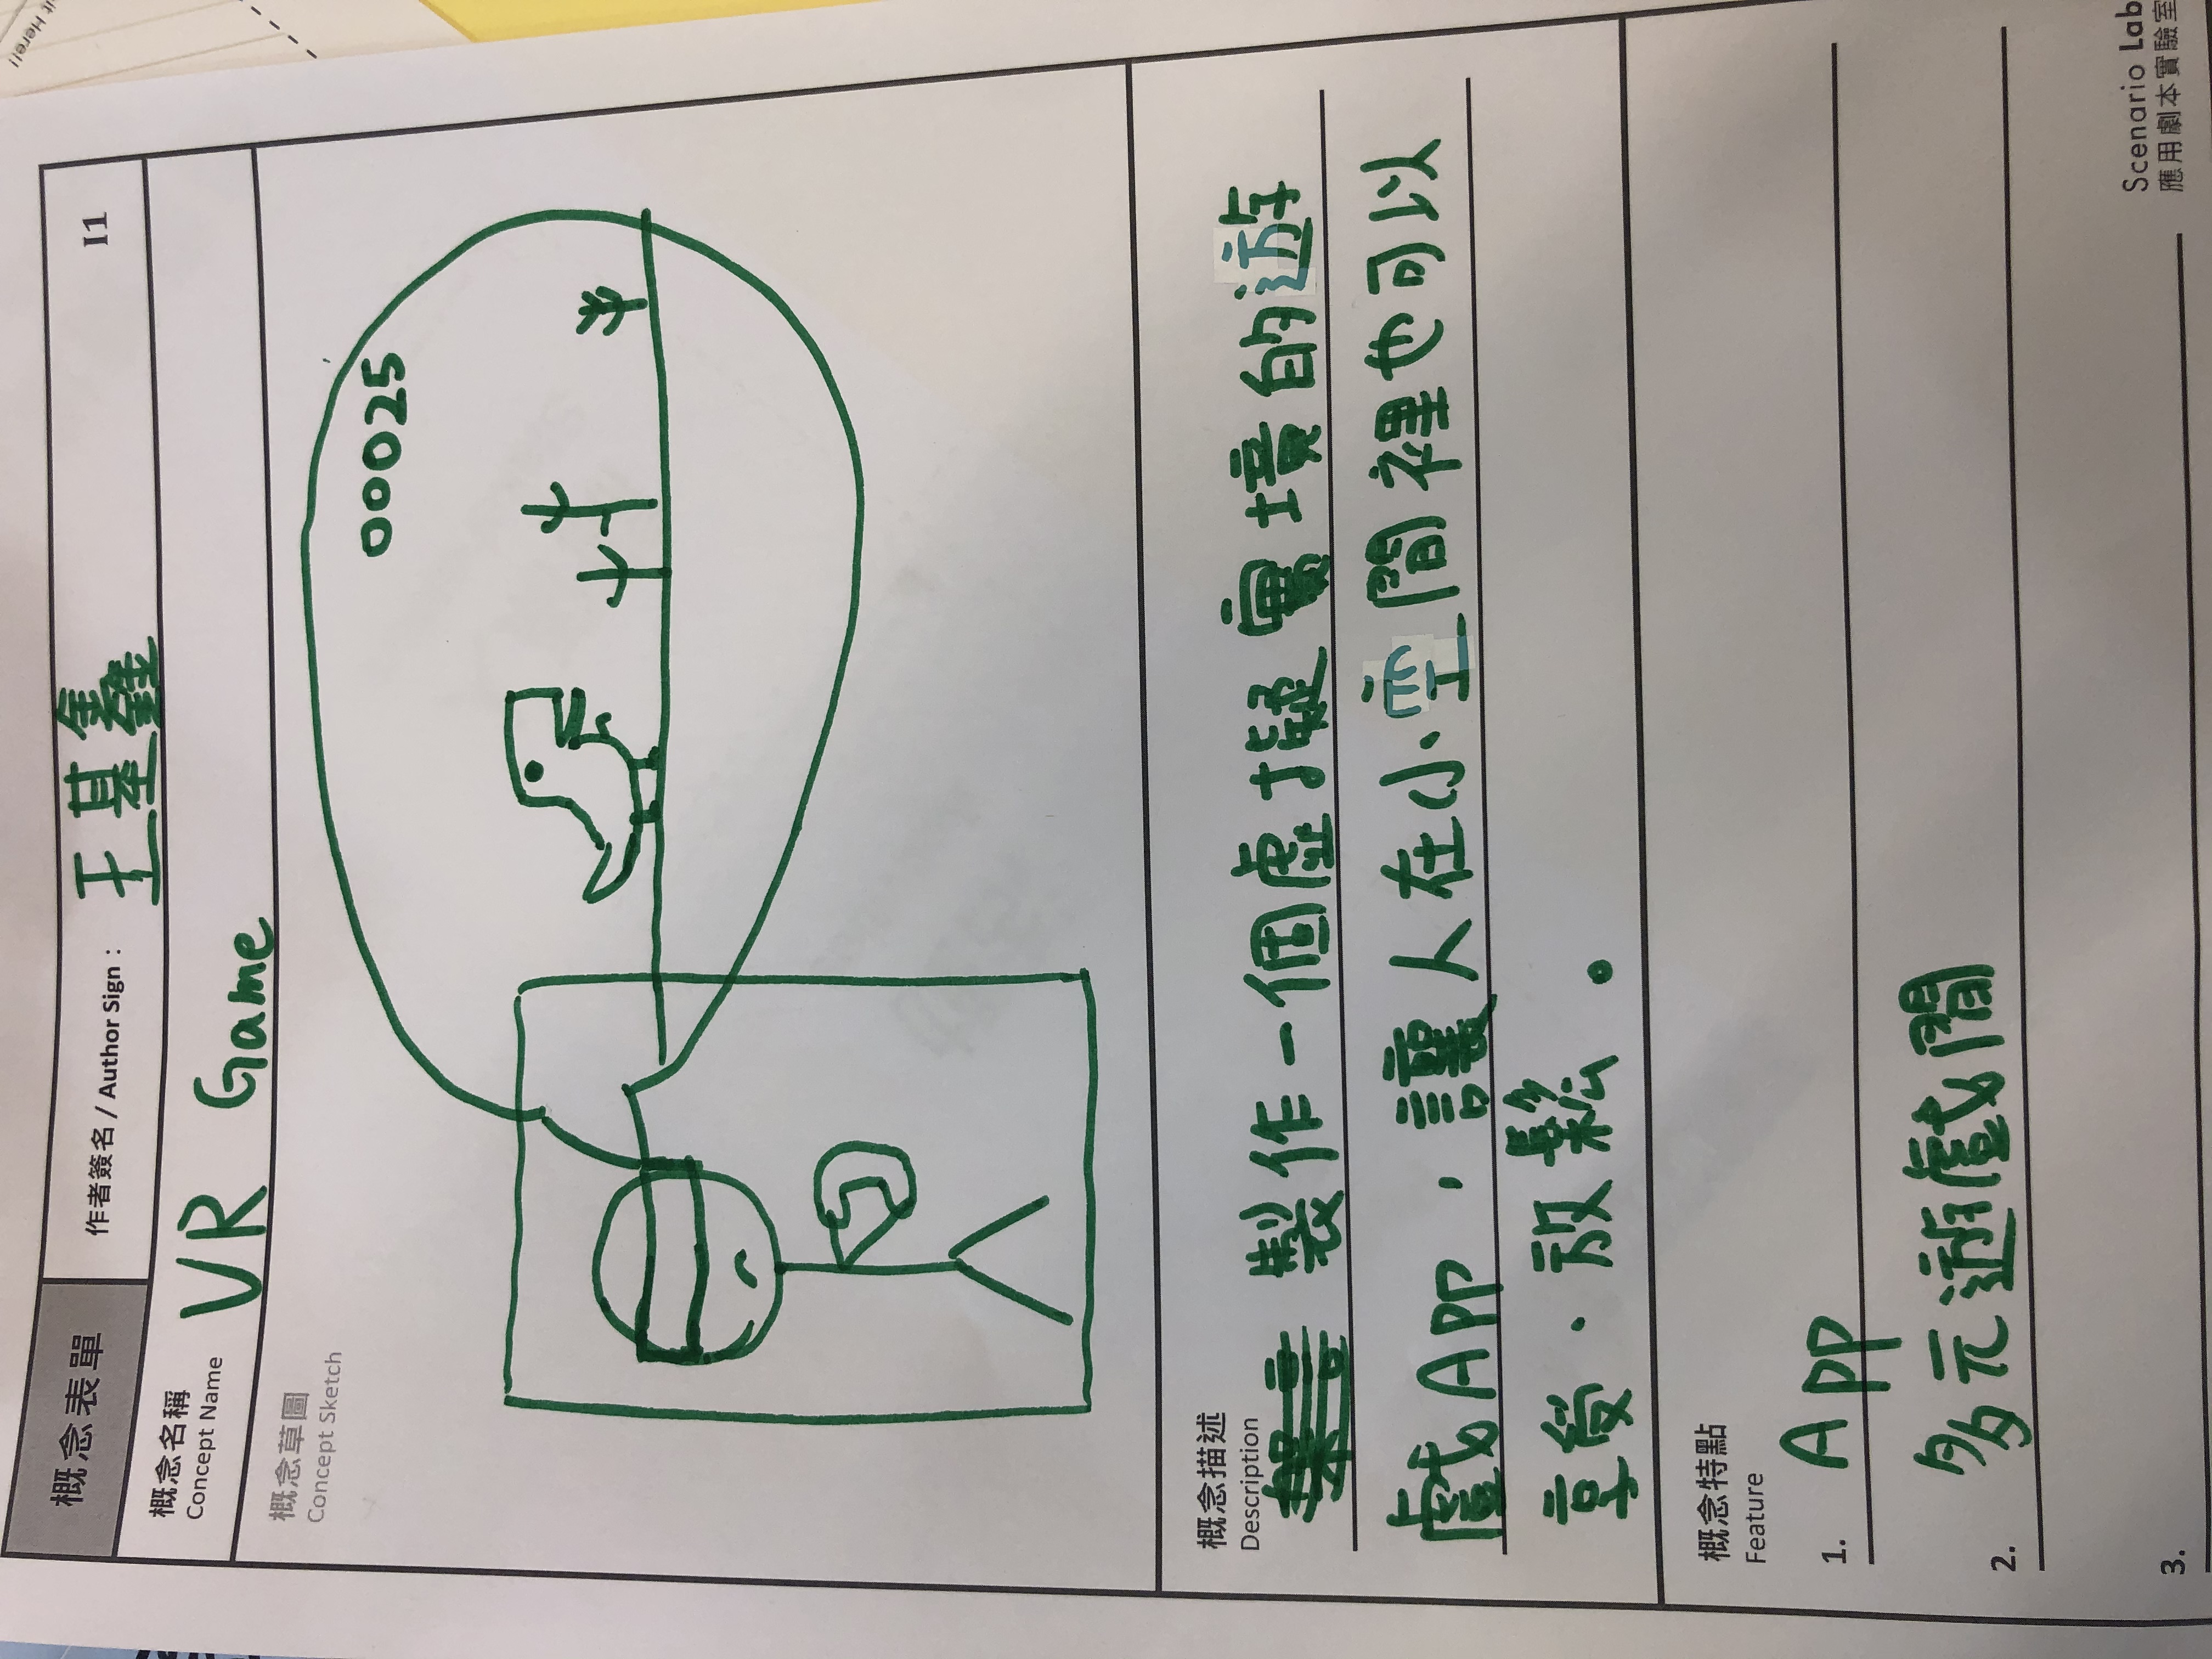 It Here!!
概念表單
作者簽名 / Author Sign： 王基鑫
I1
概念名稱
Concept Name
VR Game
概念草圖
Concept Sketch
00025
概念描述
Description
製作一個虛擬實境的遊
戲App，讓人在小空間裡也可以
享受、放鬆。
概念特點
Feature
1. App
2. 多元遊戲間
3.
Scenario Lab
應用劇本實驗室